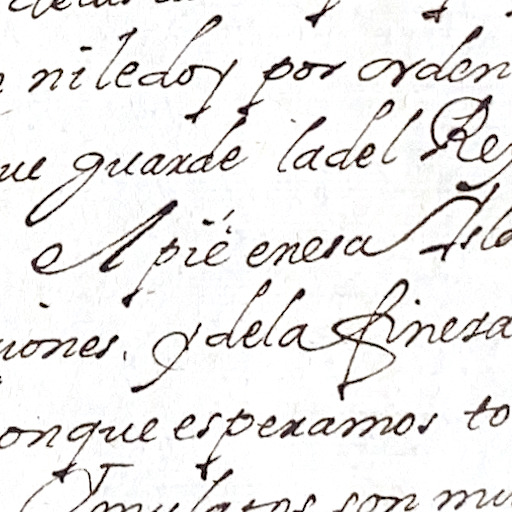 niledoy por orden
ue guarde ladel Rey
A pié enesa Isla
iones. y dela fineza
onque esperamos to
mulatos son mu